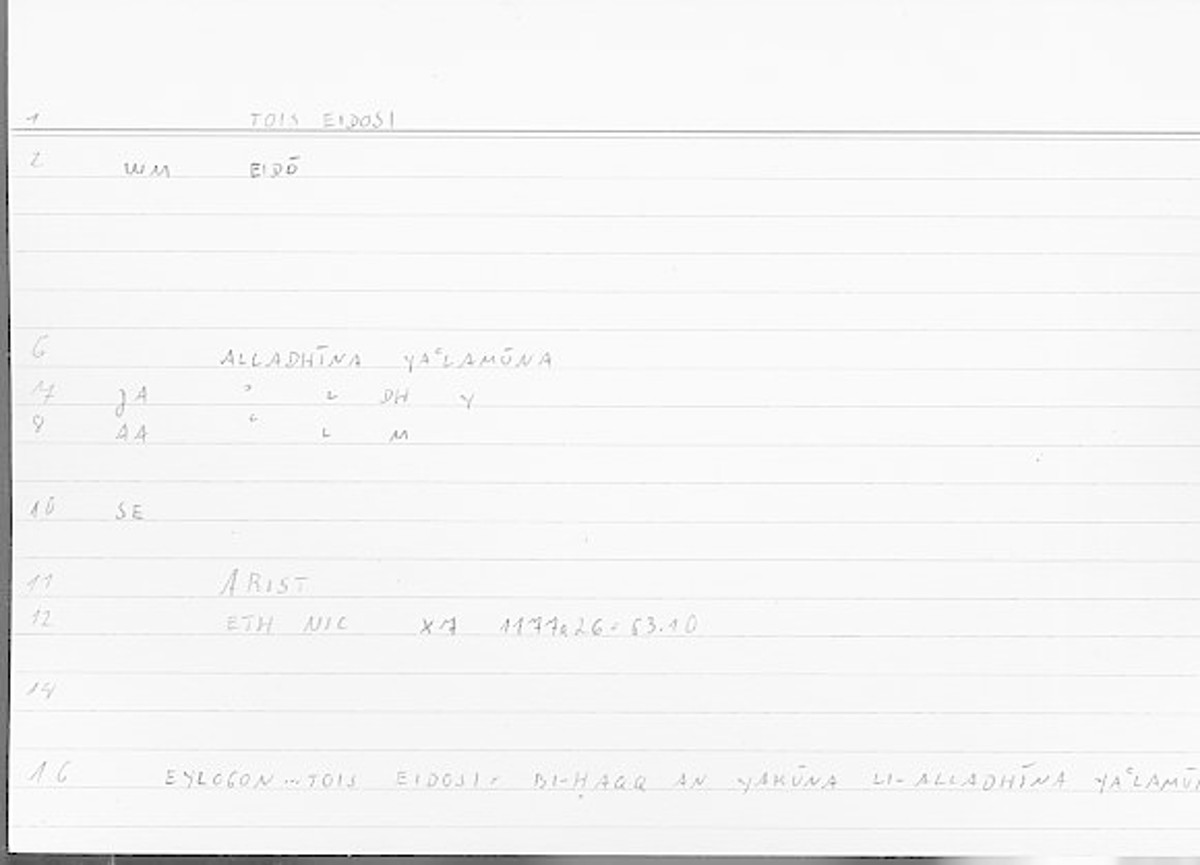 1 TOIS EIDOSI
2 WM EIDŌ
6 ALLADHĪNA YAʿLAMŪNA
7 JA ʾ L DH Y
8 AA ʿ L M
10 SE
11 ARIST
12 ETH NIC X7 1177a26 = 53.10
14
16 EYLOGON...TOIS EIDOSI = BI-ḤAQQ AN YAKŪNA LI-ALLADHĪNA YAʿLAMŪN